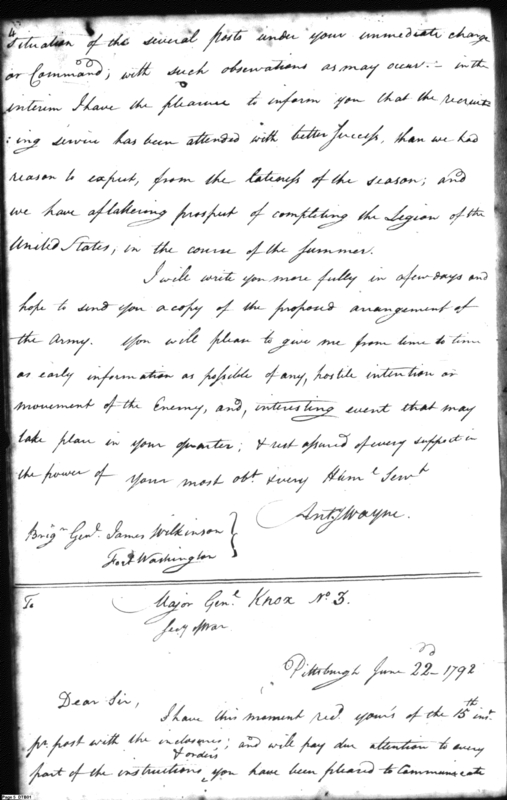 Situation of the several posts under your immediate charge
or Command; with such observations as may occur:- in the
interim I have the pleasure to inform you that the recruit-
:ing service has been attended with better success, than we had
reason to expect, from the lateness of the season; and
we have a flattering prospect of completing the Legion of the
United States, in the course of the summer.
I will write you more fully in a few days and
hope to send you a copy of the proposed arrangement of
the Army. You will please to give me from time to time
as early information as possible of any, hostile intention or
movement of the Enemy, and, interesting event that may
take place in your quarter; & rest assured of every support in
the power of Your most obt. & very Huml Servt
Anty Wayne.
Brigr Genl. James Wilkinson
Fort Washington
To Major Genl Knox No 3.
Secy of War
Pittsburgh June 22nd 1792
Dear Sir,
I have this moment recd. your's of the 15th inst
pr. post with the inclosures; and will pay due attention to every
& orders
part of the instructions, you have been pleased to Communicate
Page 5 : DTB01